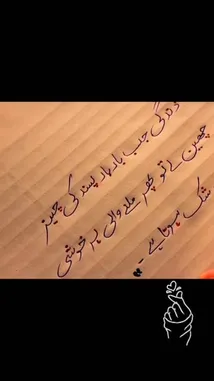 زندگی جب بار بار پسند کی چیز
چھین لے تو پھر ملنے والی ہر خوشی
شک ہوتا ہے۔